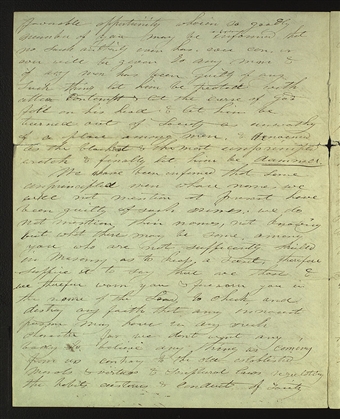 favorable opportunity wherein so goodly
number of you may be informed that
no such authority ever has been given or
ever will be given to any man &
if any man has been guilty of any
such thing let him be treated with
utter contempt & let the curse of God
fall on his head & let him be
turned out of Society as unworthy
of a place among men & denounced
as the blackest & the most unprincipled
wretch & finally let him be damned.
We have been informed that some
unprincipled men whose names we
will not mention at present have
been guilty of such crimes. We do
not mention their names, not knowing
but what there may be some among
you who are not sufficiently skilled
in Masonry as to keep a secret, therefore
suffice it to say there are those &
we therefore warn you & forewarn you in
the name of the Lord, to check and
destroy any faith that any innocent
person may have in any such
character for we don't want any
body to believe any thing as coming
from us contrary to the old established
morals & virtues & scriptural laws regulating
the habits customs & conduct of Society